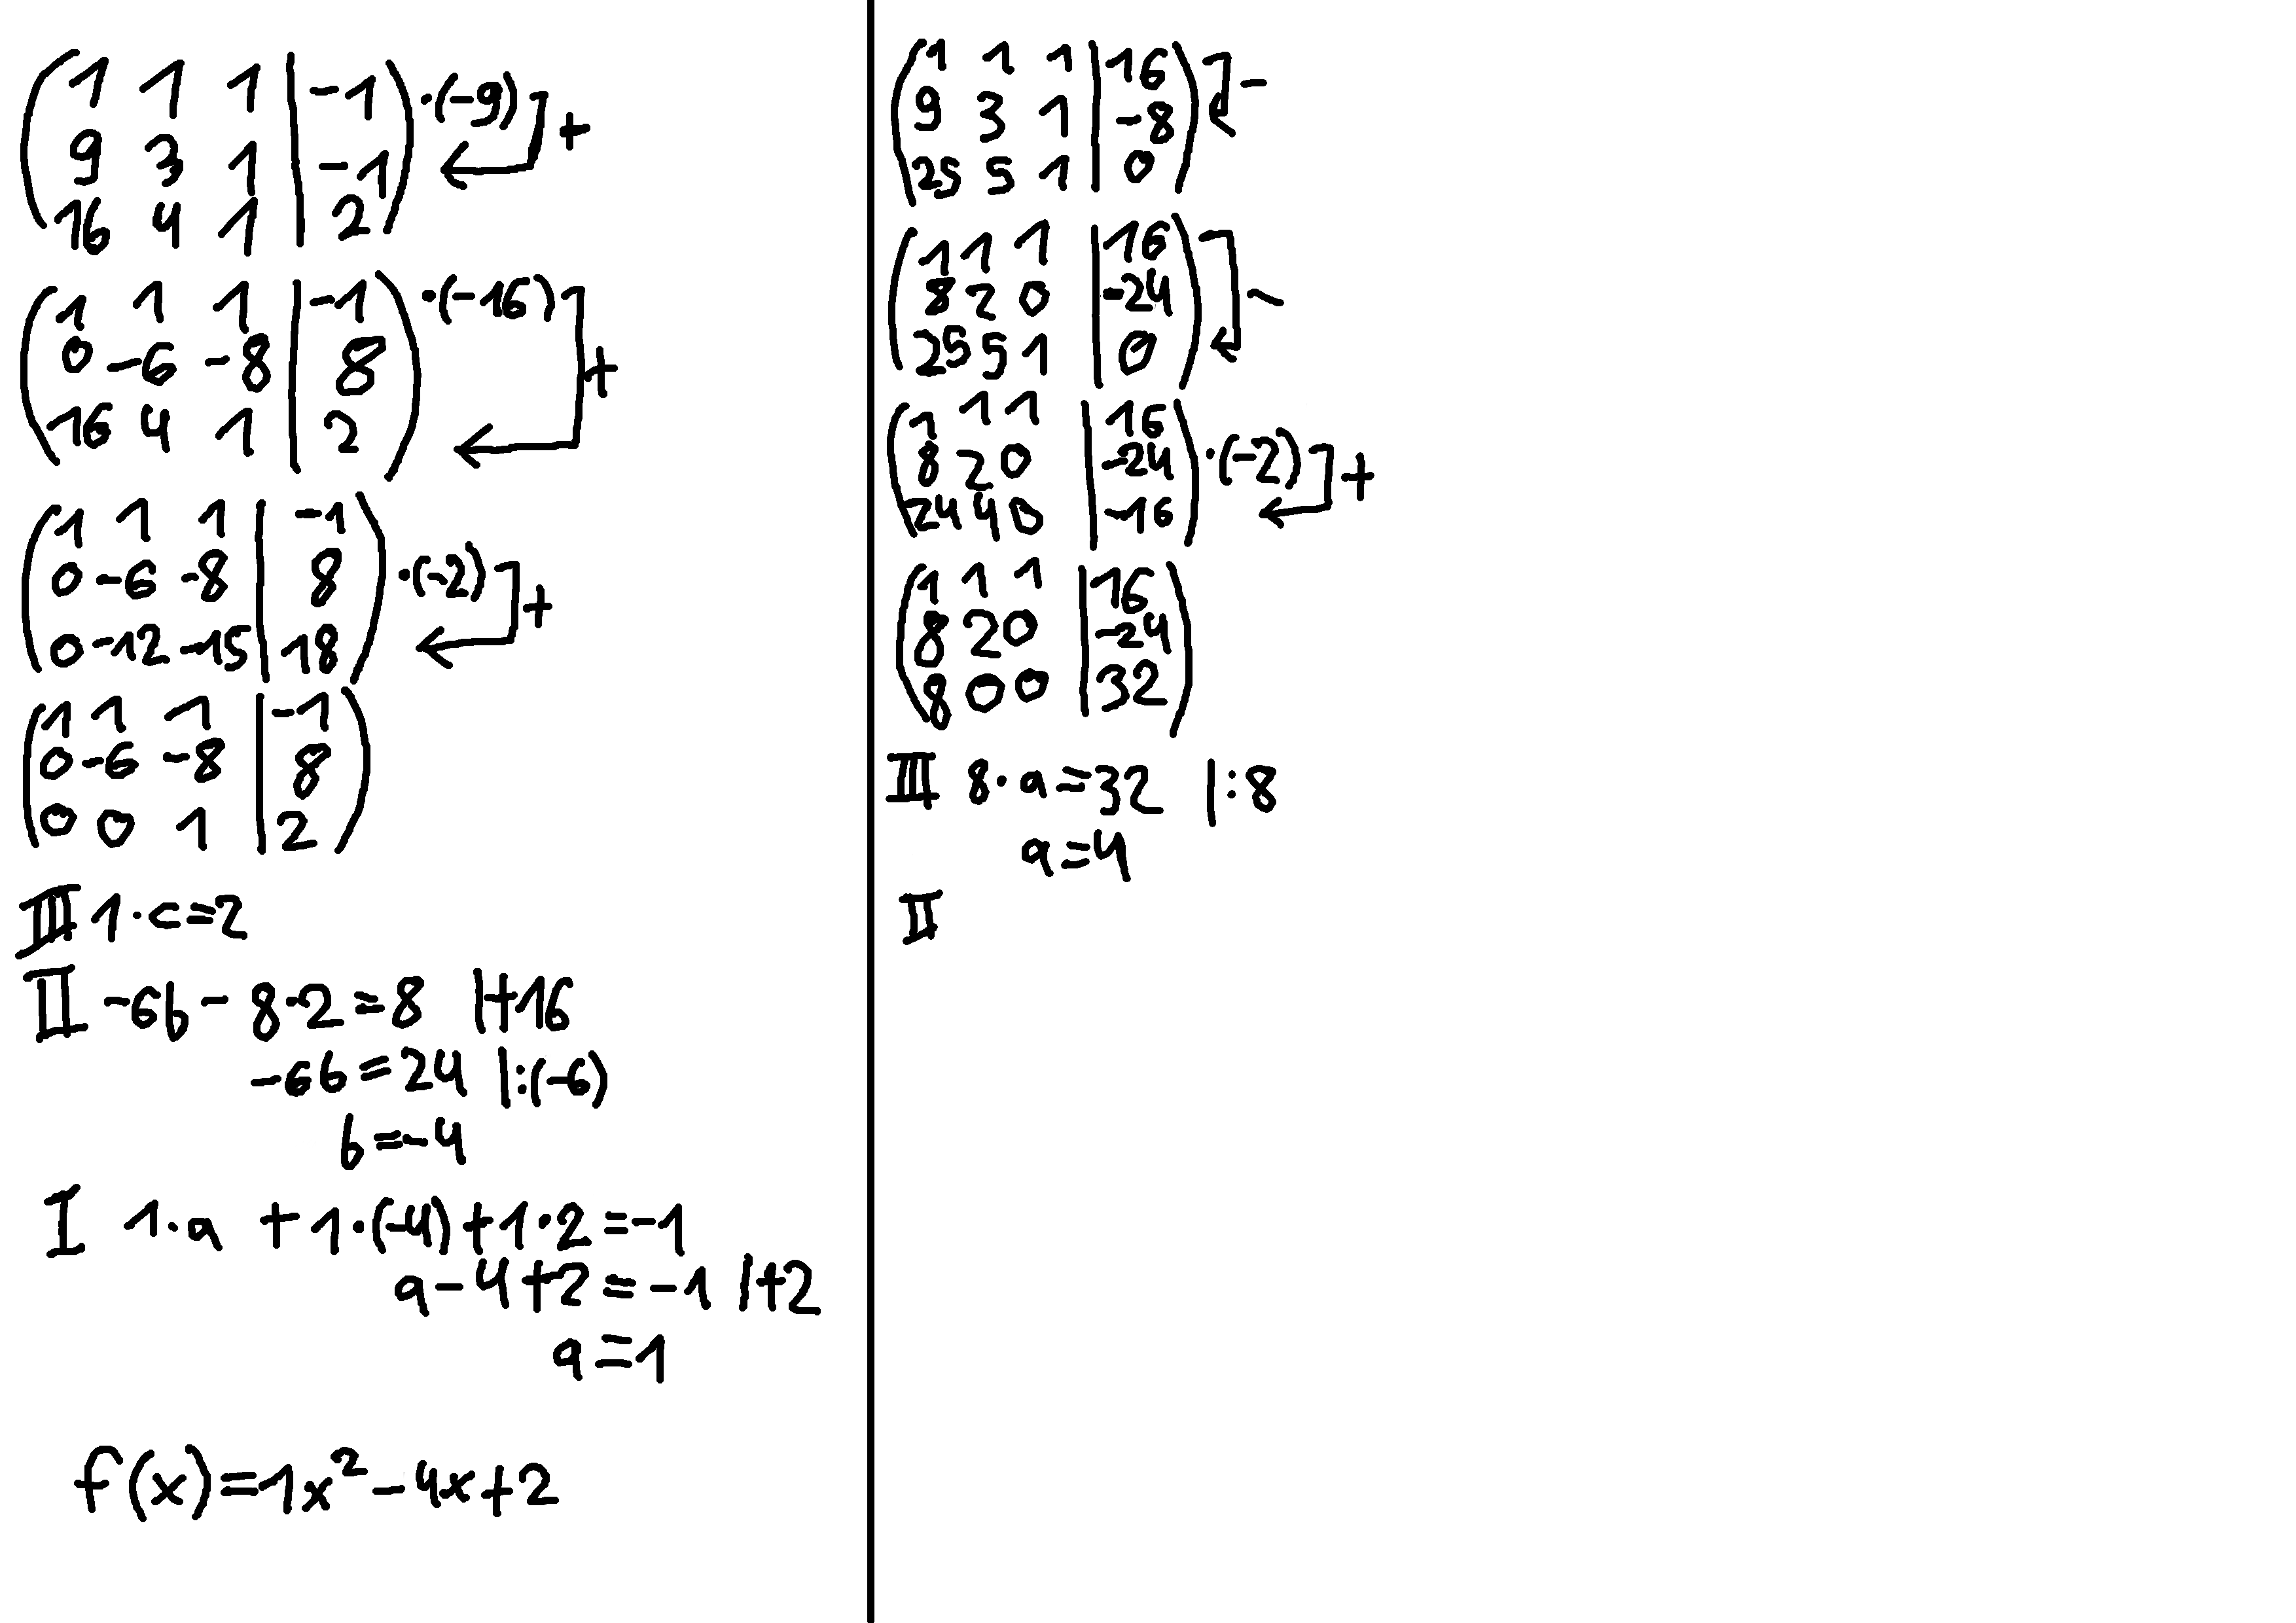 ( 1 1 1 | -1 ) ·(-9) ] +
( 9 3 1 | -1 )
( 16 4 1 | 2 )
( 1 1 1 | -1 ) ·(-16) ] +
( 0 -6 -8 | 8 )
( 16 4 1 | 2 )
( 1 1 1 | -1 )
( 0 -6 -8 | 8 ) ·(-2) ] +
( 0 -12 -15 | 18 )
( 1 1 1 | -1 )
( 0 -6 -8 | 8 )
( 0 0 1 | 2 )
III 1·c=2
II -6b-8·2=8 |+16
-6b=24 |:(-6)
b=-4
I 1·a +1·(-4)+1·2=-1
a-4+2=-1 |+2
a=1
f(x)=1x²-4x+2
( 1 1 1 | 16 ) ] -
( 9 3 1 | -8 )
( 25 5 1 | 0 )
( 1 1 1 | 16 ) ] -
( 8 2 0 | -24 )
( 25 5 1 | 0 )
( 1 1 1 | 16 )
( 8 2 0 | -24 ) ·(-2) ] +
( 24 4 0 | -16 )
( 1 1 1 | 16 )
( 8 2 0 | -24 )
( 8 0 0 | 32 )
III 8·a=32 |:8
a=4
II